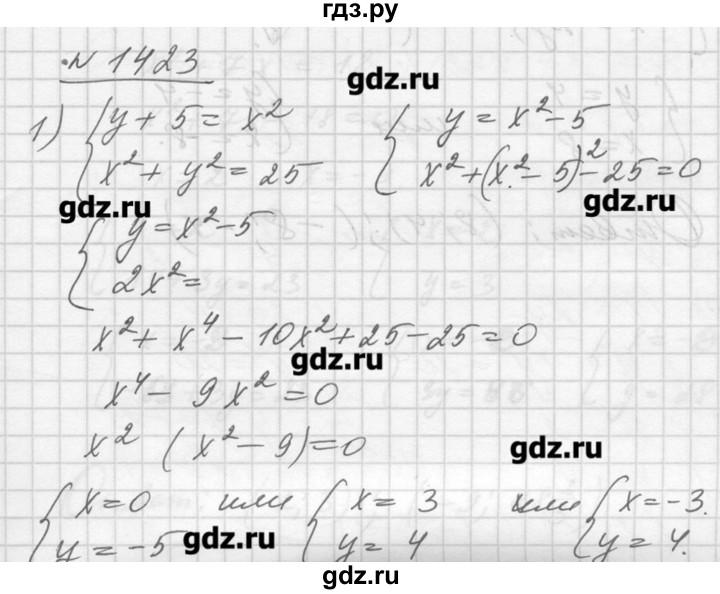 гдз.ру
№ 1423
gdz.ru
1) { y + 5 = x²
x² + y² = 25
{ y = x² - 5
x² + (x² - 5)² - 25 = 0
gdz.ru
gdz.ru
{ y = x² - 5
2x² =
x² + x⁴ - 10x² + 25 - 25 = 0
gdz.ru
x⁴ - 9x² = 0
x² (x² - 9) = 0
gdz.ru
{ x = 0 или { x = 3 или { x = -3.
y = -5 gdz.ru y = 4 y = 4.
gdz.ru